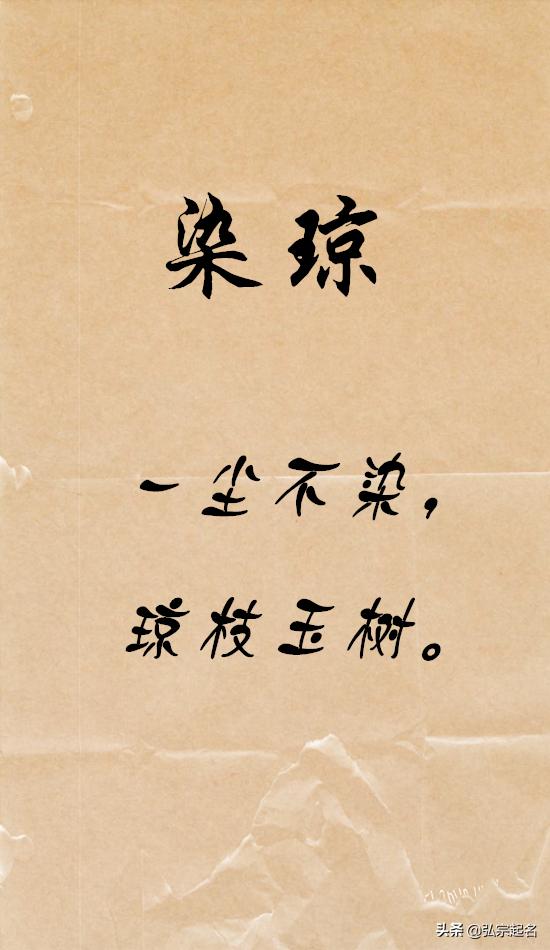 染琼
一尘不染，
琼枝玉树。
头条 @弘宗起名